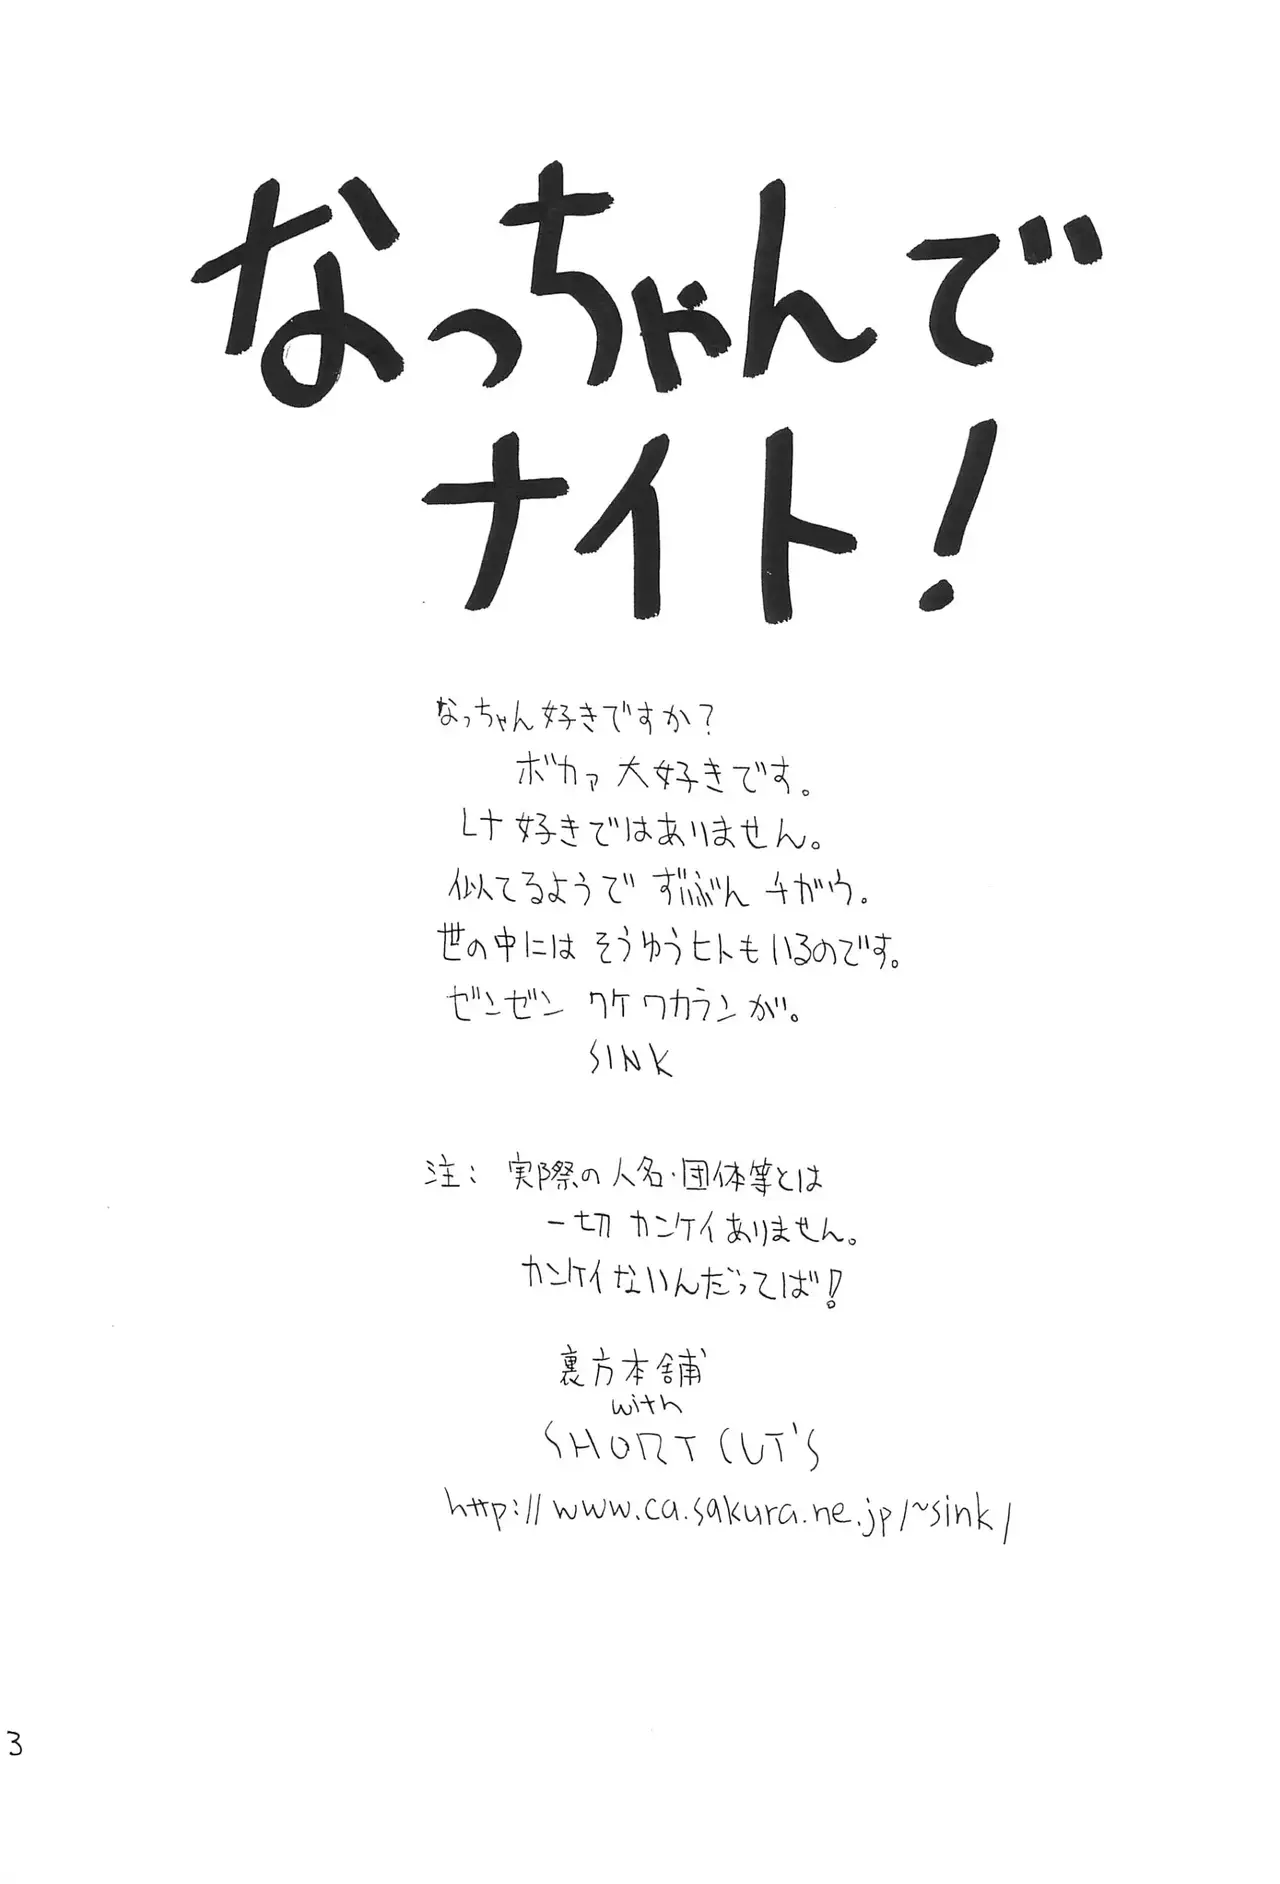 なっちゃんで
ナイト!
なっちゃん好きですか?
ボカァ 大好きです。
レナ 好きではありません。
似てるようで ずいぶん チガウ。
世の中には そうゆうヒトもいるのです。
ゼンゼン ワケワカランが。
SINK
注: 実際の人名・団体等とは
一切 カンケイありません。
カンケイないんだってば!
裏方本舗
with
SHORT CUT'S
http://www.ca.sakura.ne.jp/~sink/
3